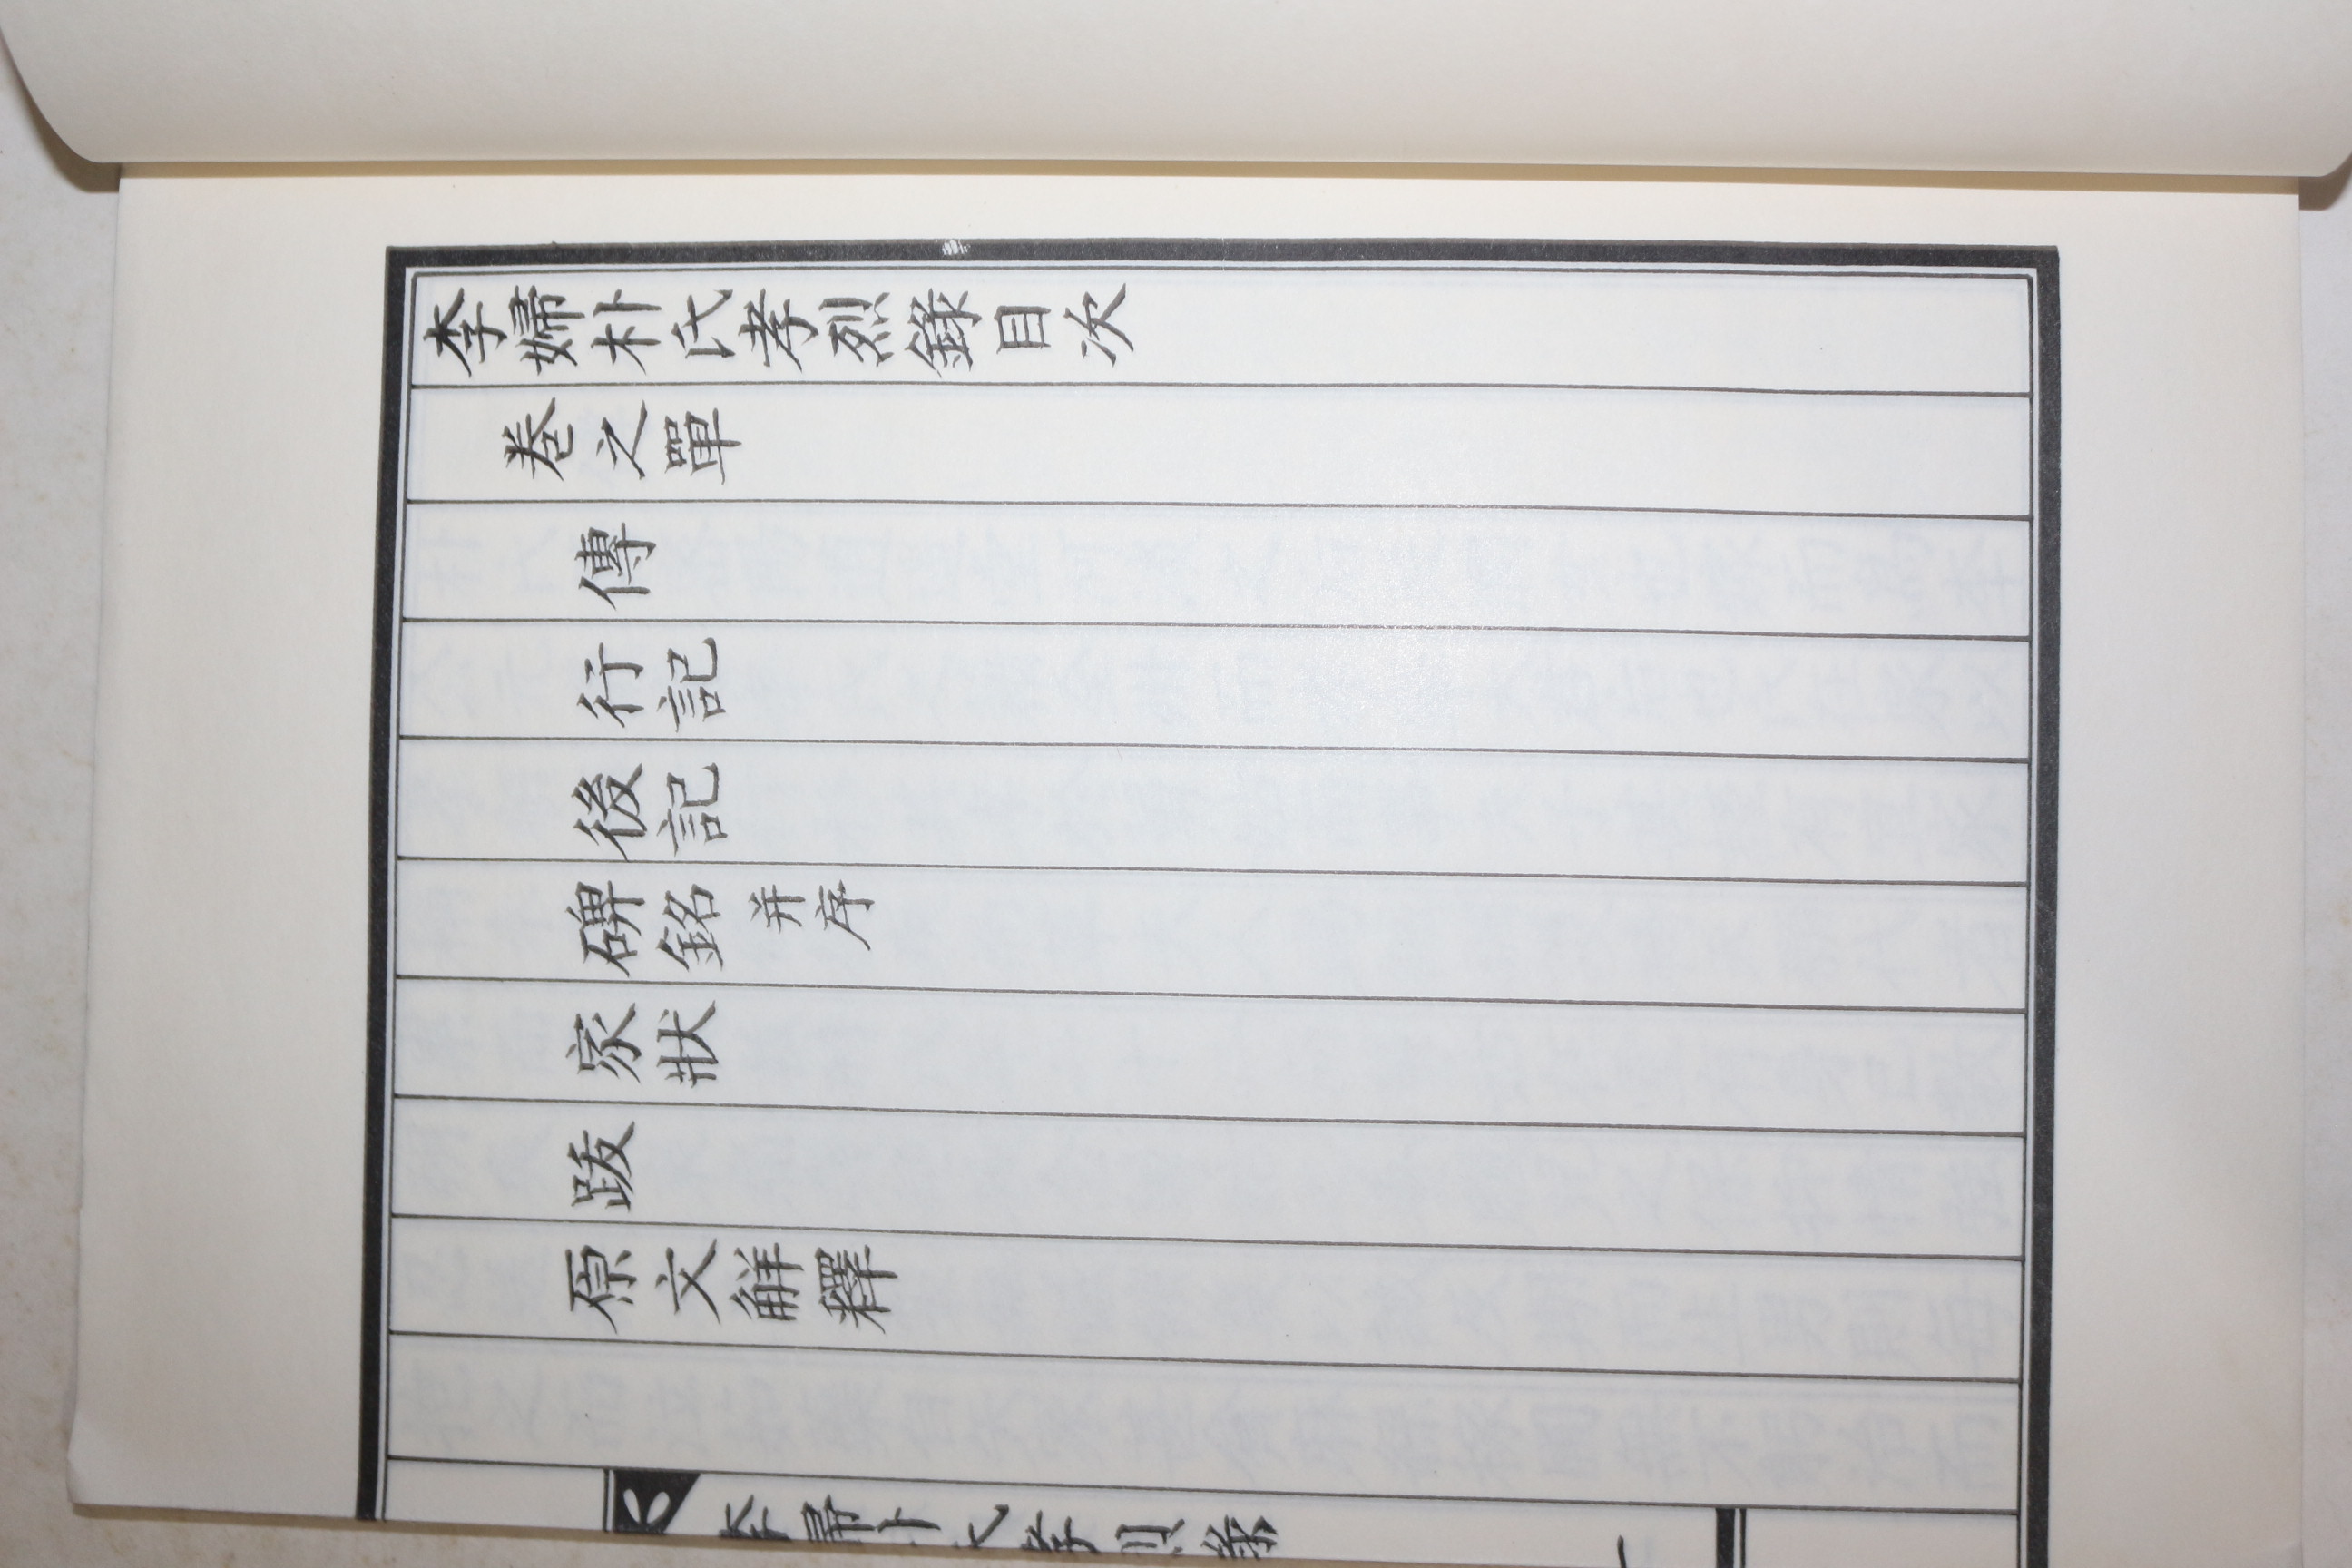 李婦朴氏孝烈錄目次
卷之單
傳
行記
後記
碑銘 并序
家狀
跋
原文解釋
李婦朴氏孝烈錄